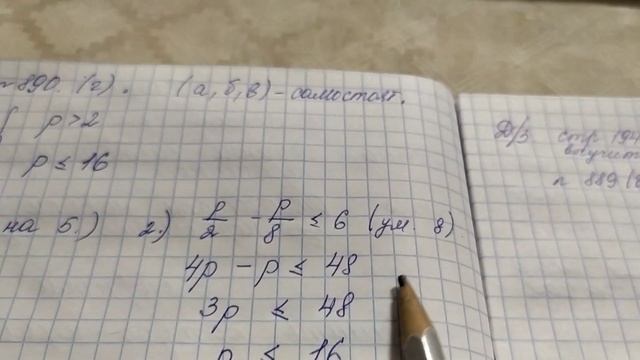 №890. (г). (а, б, в) - самостоят.
{ p > 2
p ≤ 16
на 5.) 2.) p/2 - p/8 ≤ 6 (ум. 8)
4p - p ≤ 48
3p ≤ 48
p ≤ 16
Д/з стр 194
выучит
№ 889 (